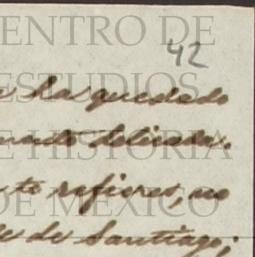 CENTRO DE
42
ESTUDIOS
ha quedado
delicada.
DE HISTORIA
te refieres, no
DE MÉXICO
de Santiago;